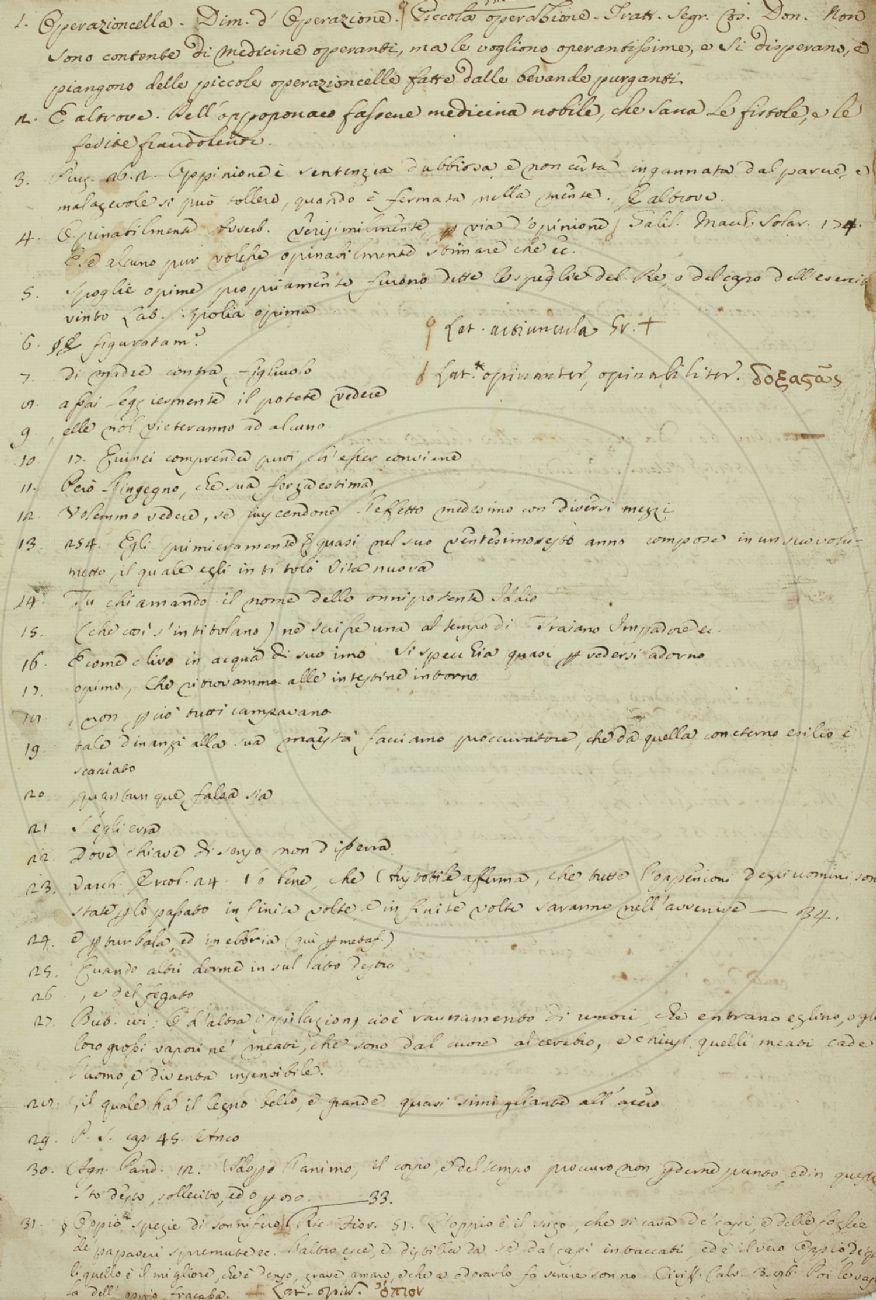 1. Operazioncella. Dim. d'Operazione. Piccola operazione. Tratt. Segr. Cos. Don. Non
sono contente di medicine operanti, ma le vogliono operantissime, e si disperano, e
piangono delle piccole operazioncelle fatte dalle bevande purganti.
2. E altrove. Dell'oppoponaco fassene medicina nobile, che sana le fistole, e le
fedite fraudolenti.
3. Oppinione è sentenzia dubbiosa, e non certa ingannata dal parere, e
malagevole si può tollere, quando è fermata nella mente. E altrove.
4. Opinabilmente Avverb. Verisimilmente, p via d'opinione. Galil. Macch. Solar. 174.
E se alcuno pur volesse opinabilmente stimare che ec.
5. Spoglie opime propriamente furono dette le spoglie del Re, o del capo dell'esercito
vinto Lat. Spolia opima
6. figuratam.
Lat. actiuncula Gr. +
7. di madre contra figliuolo
Lat. opinanter, opinabiliter. δοξαςῶς
8. assai leggiermente il potete vedere
9 , elle nol vieteranno ad alcuno
10 17. Quinci comprender puoi, ch'esser conviene
11. Però l'ingegno, che sua forza estima
12. Volemmo vedere, se succendone l'effetto medesimo con diversi mezzi
13. 254. Egli primieramente quasi nel suo ventesimosesto anno compose in un suo volu-
metto, il quale egli intitolò Vita nuova
14. Tu chiamando il nome dello onnipotente Iddio
15. (che così s'intitolano) ne scrisse una al tempo di Traiano Impadore ec.
16. E come clivo in acqua di suo imo Si specchia quasi p vedersi adorno
17. opimo, che ritrovammo alle intestine intorno
18 , non pciò tutti campavano
19. tale dinanzi alla sua maestà facciamo proccuratore, che da quella con eterno esilio è
scacciato
20 , quantunque falsa sia
21 S'egli erra
22. Dove chiave di senso non diserra
23. Varch. Ercol. 24. Io tene, che Aristotile afferma, che tutte l'oppenioni degli uomini sono
state plo passato infinite volte, e infinite volte saranno nell'avvenire — 34.
24. e pturbala, ed inebbria (qui p metaf.)
25. Quando altri dorme in sul lato destro
26 , e del fegato
27. But. ivi: E l'altra oppilazione, cioè raunamento di umori, che entrano eglino, o gli
loro grossi vapori ne' meati, che sono dal cuore al cerebro, e chiusi quelli meati cade
l'uomo, e diventa insensibile.
28. , il quale ha il legno bello, e grande quasi simigliante all'acero
29. P. S. cap. 45.
30. Agn. Pand. 12. l'animo, il corpo, e del tempo proccuro non pderne punto, ed in questo
sto desto, sollecito, ed opposo. 33.
31. Oppio spezie di sonnifero. Ric. Fior. 51. L'oppio è il sugo, che si cava de' capi, e delle foglie
de' papaveri spremute ec. l'altro esce, e distilla da sè da' capi intaccati, ed è il vero
quello è il migliore, che è denso, grave, amaro, e che a odorarlo fa venire sonno.
Lat. opium. ὄπιον